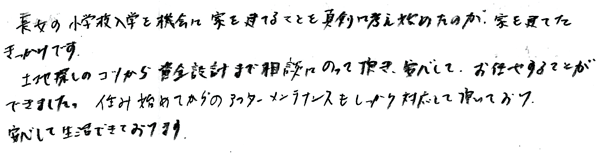 長女の小学校入学を機会に家を建てることを真剣に考え始めたのが、家を建てた
きっかけです。
土地探しのコツから資金設計まで相談にのって頂き、安心して、お任せすることが
できました。住み始めてからのアフターメンテナンスもしっかり対応して頂いており、
安心して生活できております。